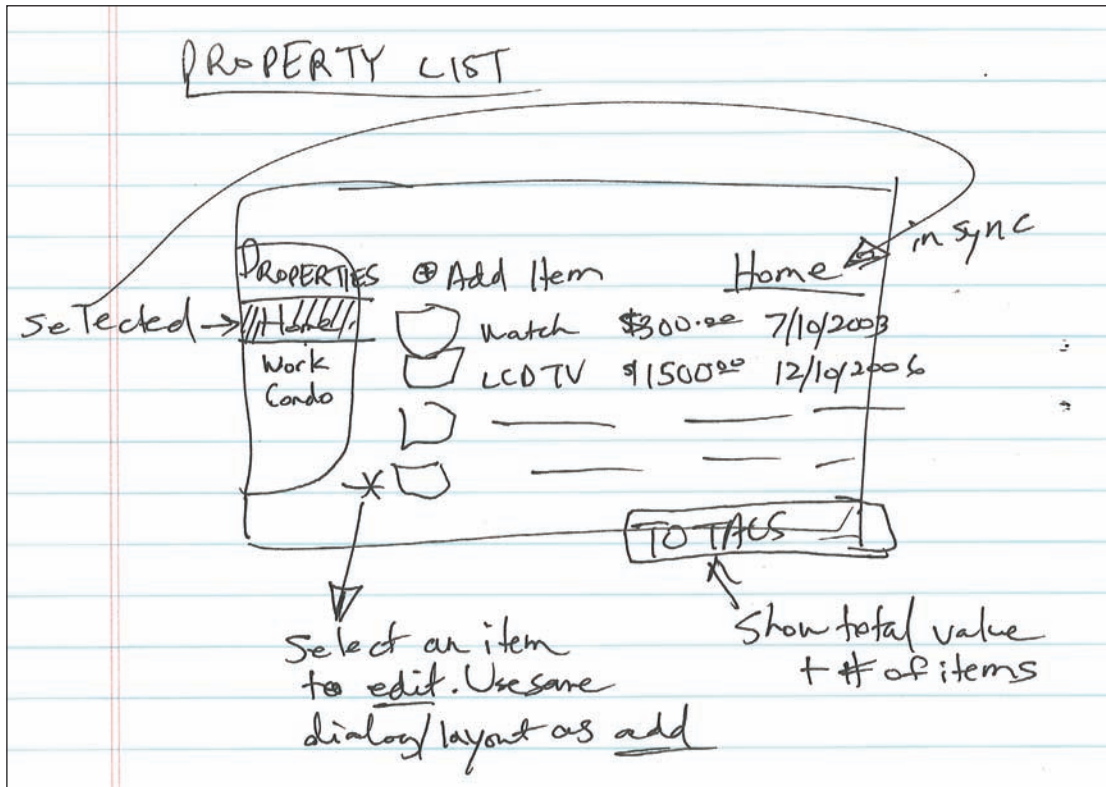 PROPERTY LIST
in sync
PROPERTIES ⊕ Add Item Home
selected → Home Watch $300.00 7/10/2003
Work LCD TV $1500.00 12/10/2006
Condo
TOTALS
Select an item
to edit. Use same
dialog/layout as add
Show total value
+ # of items